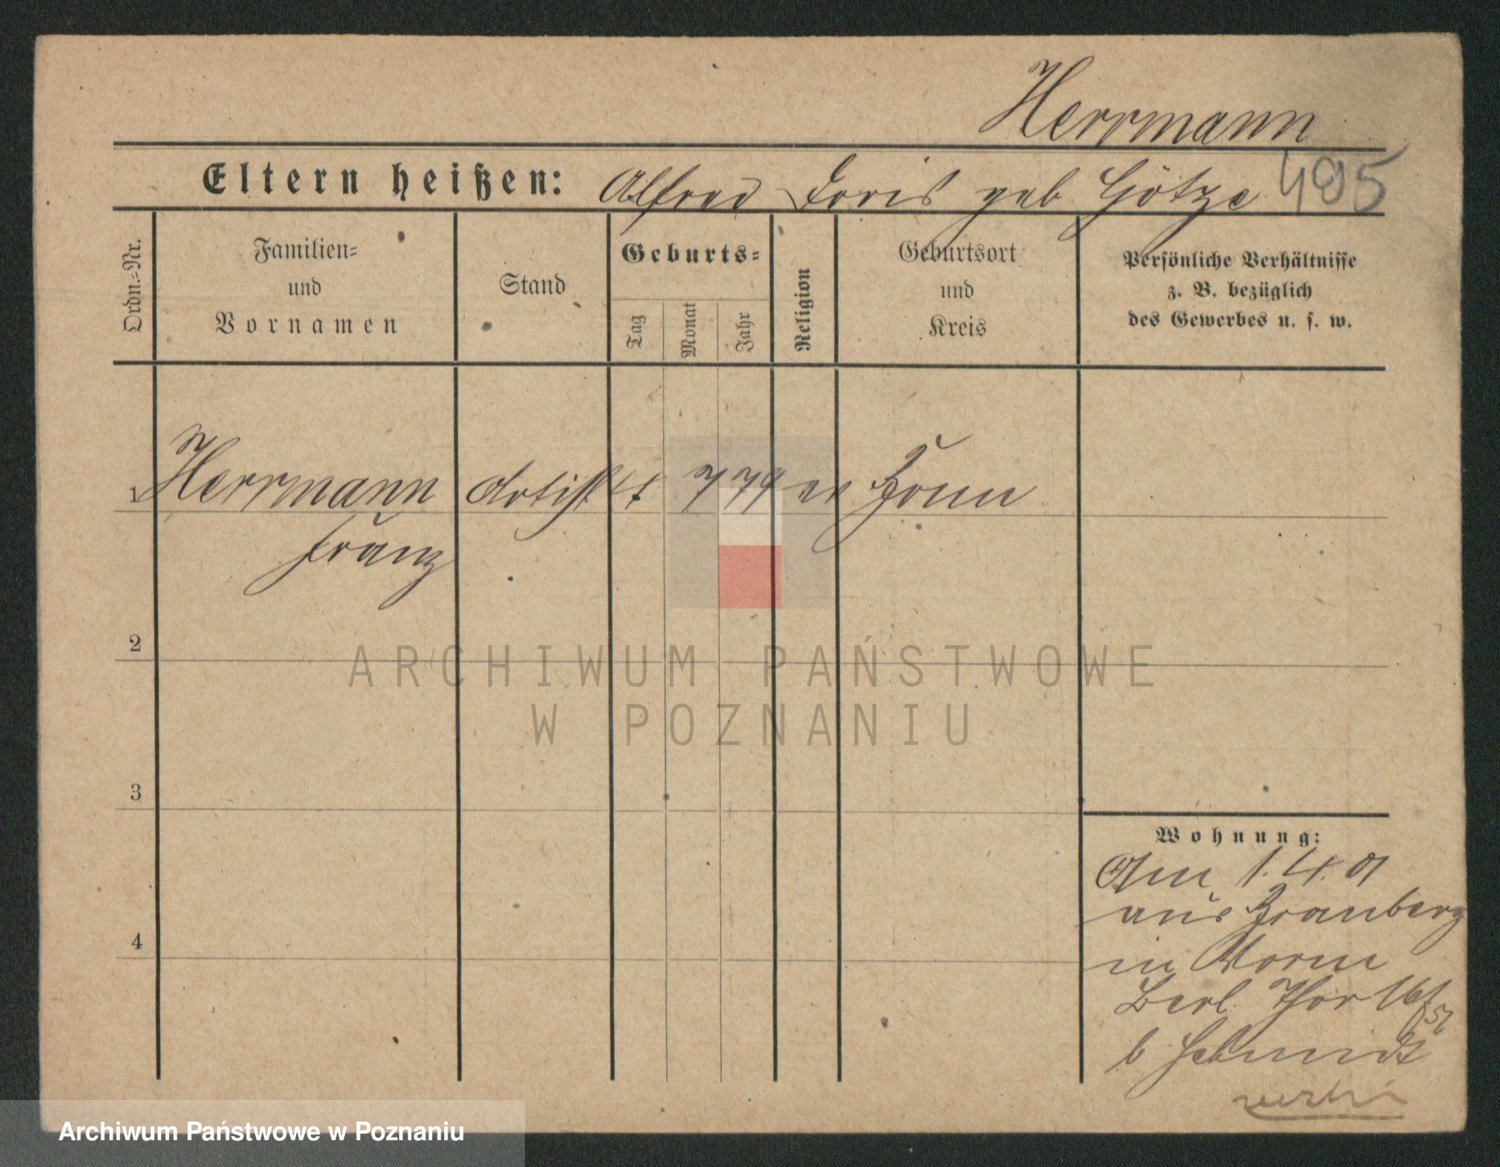 Herrmann
Eltern heißen: Alfred Doris geb Götze 495
Ordn.-Nr.
Familien-
und
Vornamen
Stand
Geburts-
Tag
Monat
Jahr
Religion
Geburtsort
und
Kreis
Persönliche Verhältnisse
z. B. bezüglich
des Gewerbes u. s. w.
1 Herrmann Artist 4 7 79 ev
Franz
2
ARCHIWUM PAŃSTWOWE
W POZNANIU
3
Wohnung:
4
Am 1.4.01
aus
in
Berl. Thor 16
b Schmidt
Archiwum Państwowe w Poznaniu